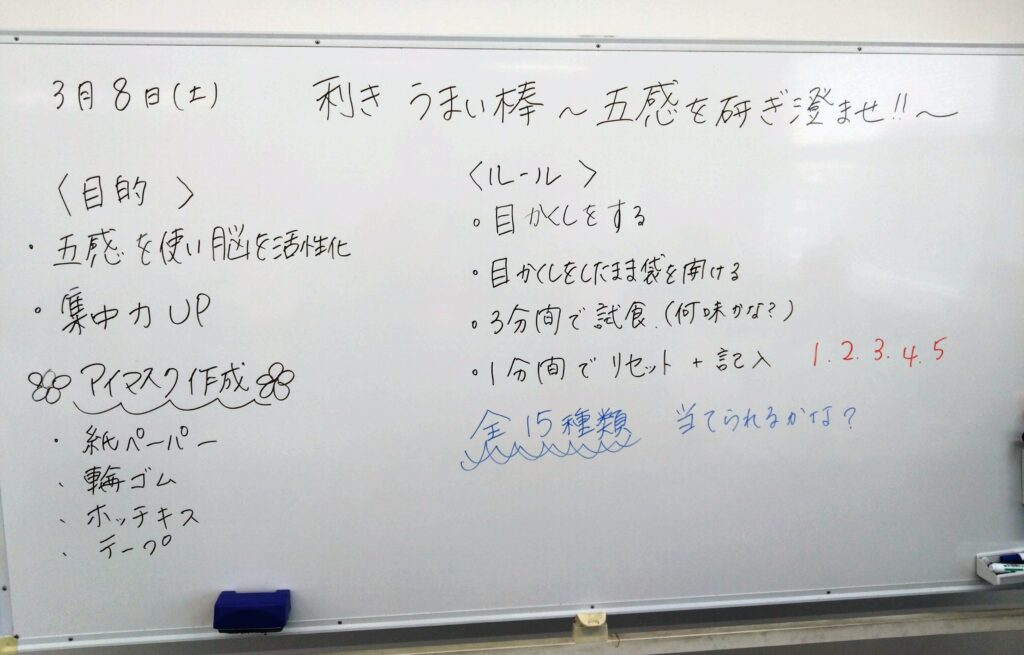 3月8日(土) 利き うまい棒 ～五感を研ぎ澄ませ!!～
〈目的〉
・五感を使い脳を活性化
・集中力UP
アイマスク作成
・紙ペーパー
、輪ゴム
、ホッチキス
、テープ
〈ルール〉
・目かくしをする
・目かくしをしたまま袋を開ける
・3分間で試食.(何味かな?)
・1分間でリセット+記入 1.2.3.4.5
全15種類 当てられるかな?